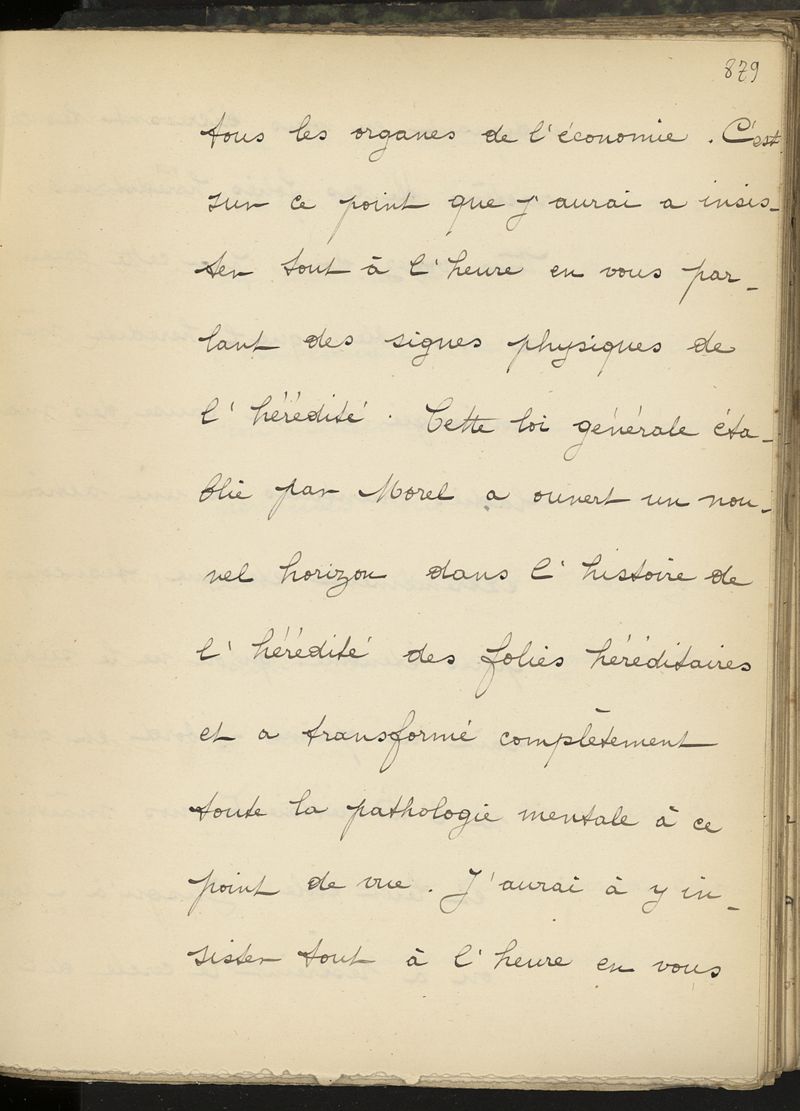 879
tous les organes de l'économie. C'est
sur ce point que j'aurai a insis-
ter tout à l'heure en vous par-
lant des signes physiques de
l'hérédité. Cette loi générale éta-
blie par Morel a ouvert un nou-
vel horizon dans l'histoire de
l'hérédité des folies héréditaires
et a transformé complètement
toute la pathologie mentale à ce
point de vue. J'aurai à y in-
sister tout à l'heure en vous